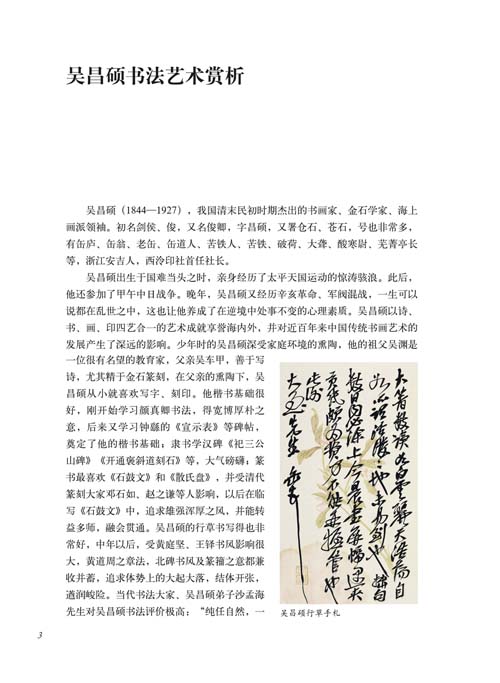 吴昌硕书法艺术赏析
吴昌硕（1844—1927），我国清末民初时期杰出的书画家、金石学家、海上
画派领袖。初名剑侯、俊，又名俊卿，字昌硕，又署仓石、苍石，号也非常多，
有缶庐、缶翁、老缶、缶道人、苦铁人、苦铁、破荷、大聋、酸寒尉、芜菁亭长
等，浙江安吉人，西泠印社首任社长。
吴昌硕出生于国难当头之时，亲身经历了太平天国运动的惊涛骇浪。此后，
他还参加了甲午中日战争。晚年，吴昌硕又经历辛亥革命、军阀混战，一生可以
说都在乱世之中，这也让他养成了在逆境中处事不变的心理素质。吴昌硕以诗、
书、画、印四艺合一的艺术成就享誉海内外，并对近百年来中国传统书画艺术的
发展产生了深远的影响。少年时的吴昌硕深受家庭环境的熏陶，他的祖父吴渊是
一位很有名望的教育家，父亲吴车甲，善于写
诗，尤其精于金石篆刻，在父亲的熏陶下，吴
昌硕从小就喜欢写字、刻印。他楷书基础很
好，刚开始学习颜真卿书法，得宽博厚朴之
意，后来又学习钟繇的《宣示表》等碑帖，
奠定了他的楷书基础；隶书学汉碑《祀三公
山碑》《开通褒斜道刻石》等，大气磅礴；篆
书最喜欢《石鼓文》和《散氏盘》，并受清代
篆刻大家邓石如、赵之谦等人影响，以后在临
写《石鼓文》中，追求雄强浑厚之风，并能转
益多师，融会贯通。吴昌硕的行草书写得也非
常好，中年以后，受黄庭坚、王铎书风影响很
大，黄道周之章法，北碑书风及篆籀之意都兼
收并蓄，追求体势上的大起大落，结体开张，
遒润峻险。当代书法大家、吴昌硕弟子沙孟海
先生对吴昌硕书法评价极高：“纯任自然，一
吴昌硕行草手札
3